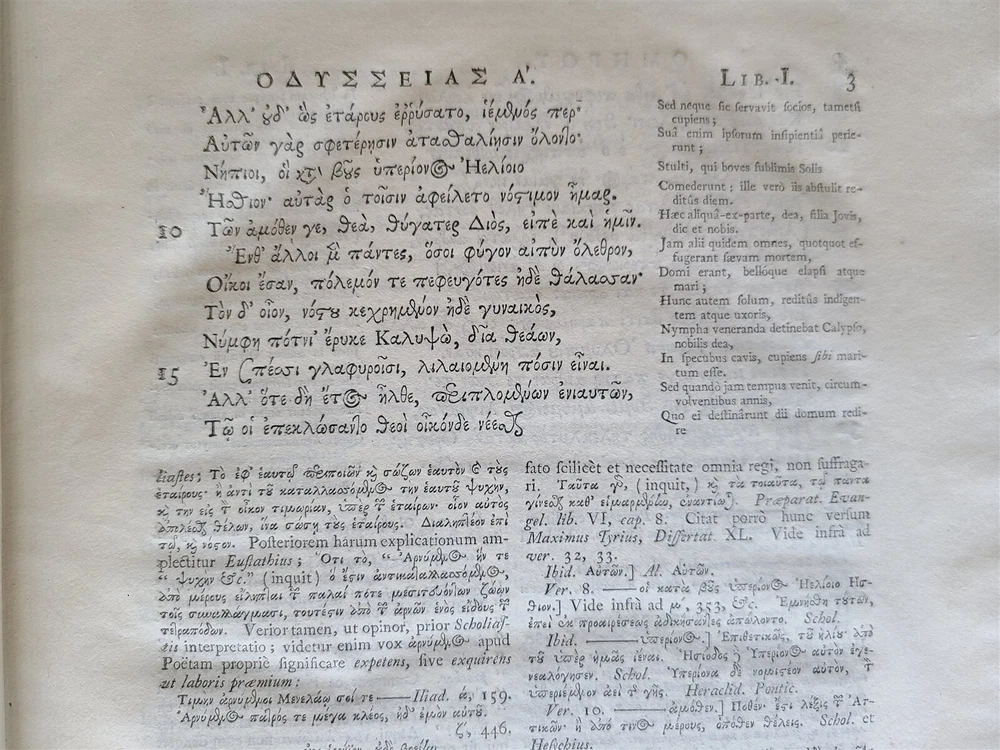 ΟΔΥΣΣΕΙΑΣ Α΄. LIB. I. 3
Ἀλλ' ἐδ' ὣς ἑτάρους ἐῤῥύσατο, ἱέμενός περ·
Αὐτῶν γὰρ σφετέρῃσιν ἀτασθαλίῃσιν ὄλοντο·
Νήπιοι, οἳ κατὰ βοῦς ὑπερίονος Ἠελίοιο
Ἤσθιον· αὐτὰρ ὁ τοῖσιν ἀφείλετο νόστιμον ἦμαρ.
10 Τῶν ἁμόθεν γε, θεὰ, θύγατερ Διὸς, εἰπὲ καὶ ἡμῖν.
Ἔνθ' ἄλλοι μὲν πάντες, ὅσοι φύγον αἰπὺν ὄλεθρον,
Οἴκοι ἔσαν, πόλεμόν τε πεφευγότες ἠδὲ θάλασσαν·
Τὸν δ' οἶον, νόστου κεχρημένον ἠδὲ γυναικὸς,
Νύμφη πότνι' ἔρυκε Καλυψὼ, δῖα θεάων,
15 Ἐν σπέσσι γλαφυροῖσι, λιλαιομένη πόσιν εἶναι.
Ἀλλ' ὅτε δὴ ἔτος ἦλθε, περιπλομένων ἐνιαυτῶν,
Τῷ οἱ ἐπεκλώσαντο θεοὶ οἶκόνδε νέεσθαι
Sed neque sic servavit socios, tametsi
cupiens;
Suâ enim ipsorum insipientiâ perie-
runt;
Stulti, qui boves sublimis Solis
Comederunt: ille verò iis abstulit re-
ditûs diem.
Hæc aliquâ-ex-parte, dea, filia Jovis,
dic et nobis.
Jam alii quidem omnes, quotquot ef-
fugerant sævam mortem,
Domi erant, bellóque elapsi atque
mari;
Hunc autem solum, reditûs indigen-
tem atque uxoris,
Nympha veneranda detinebat Calypso,
nobilis dea,
In specubus cavis, cupiens sibi mari-
tum esse.
Sed quandò jam tempus venit, circum-
volventibus annis,
Quo ei destinârunt dii domum redi-
re
stastes; Τὸ ἐφ' ἑαυτῷ περιποιῶν κὶ σώζων ἑαυτὸν καὶ τοὺς
ἑταίρους· ἢ ἀντὶ τοῦ καταλλασσόμενος τὴν ἑαυτοῦ ψυχὴν,
κὶ τὴν εἰς τ οἶκον τιμωρίαν, ὑπὲρ τῶν ἑταίρων· οἷον αὐτὸς
ἀπολέσθαι θέλων, ἵνα σώσῃ τοὺς ἑταίρους. Διαληπτέον ἐπὶ
τῷ, κὶ νόστον. Posteriorem harum explicationum am-
plectitur Eustathius; Ὅτι τὸ, "Ἀρνύμενος ἥν τε
" ψυχὴν &c." (inquit) ὅ ἐστιν ἀντικαταλλασσόμενος,
ἀπὸ μέρους εἴληπται τῶν παλαί ποτε μεσιτευόντων ζώων
τοῖς συναλλάγμασι, τουτέσιν ἀπὸ τῶν ἀρνῶν ἑνὸς εἴδους τῶν
τετραπόδων. Verior tamen, ut opinor, prior Scholias-
tis interpretatio; videtur enim vox ἀρνύμενος apud
Poëtam propriè significare expetens, sive exquirens
ut laboris præmium:
Τιμὴν ἀρνύμενοι Μενελάῳ σοί τε —— Iliad. ά, 159.
Ἀρνύμενος πατρός τε μέγα κλέος, ἠδ' ἐμὸν αὐτοῦ.
ζ, 446.
fato scilicèt et necessitate omnia regi, non suffraga-
ri. Ταῦτα γὰρ, (inquit,) κὶ τὰ τοιαῦτα, τῷ πάντα
γίνεσθαι καθ' εἱμαρμένην, ἐναντιοῦται. Præparat. Evan-
gel. lib. VI, cap. 8. Citat porrò hunc versum
Maximus Tyrius, Dissertat. XL. Vide infrà ad
ver. 32, 33.
Ibid. Αὐτῶν.] Al. Αὐτῶν.
Ver. 8. —— οἳ κατὰ βοῦς ὑπερίονος Ἠελίοιο Ἤσ-
θιον.] Vide infrà ad μ', 353, &c. Ἐμνήσθη τούτων,
ἐπεὶ ἐκ προαιρέσεως ἀδικήσαντες ἀπώλοντο. Schol.
Ibid. —— ὑπερίονος.] Ἐπιθετικῶς, τοῦ ἡλίου ἀπὸ
τοῦ ὑπὲρ ἡμᾶς ἰέναι. Ἡσίοδος δὲ Ὑπερίονος αὐτὸν ἐγε-
νεαλόγησεν. Schol. Ὑπερίονα δὲ νομιστέον αὐτὸν, τὸν
ὑπεριέμενον ἀεὶ τῆς γῆς. Heraclid. Pontic.
Ver. 10. —— ἁμόθεν.] Πόθεν· ἔστι λέξις τῶν Ἀτ-
τικῶν ἢ ἀπό τινος μέρους, ὁπόθεν θέλεις. Schol. et
Hesichius.